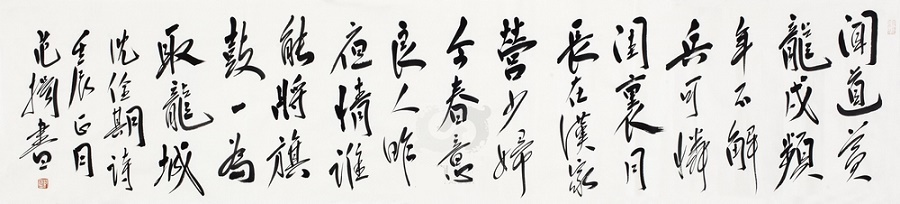 聞道黃
龍戍頻
年不解
兵可憐
閨裏月
長在漢家
營少婦
今春意
良人昨
夜情誰
能將旗
鼓一為
取龍城
沈佺期詩
壬辰正月
范書